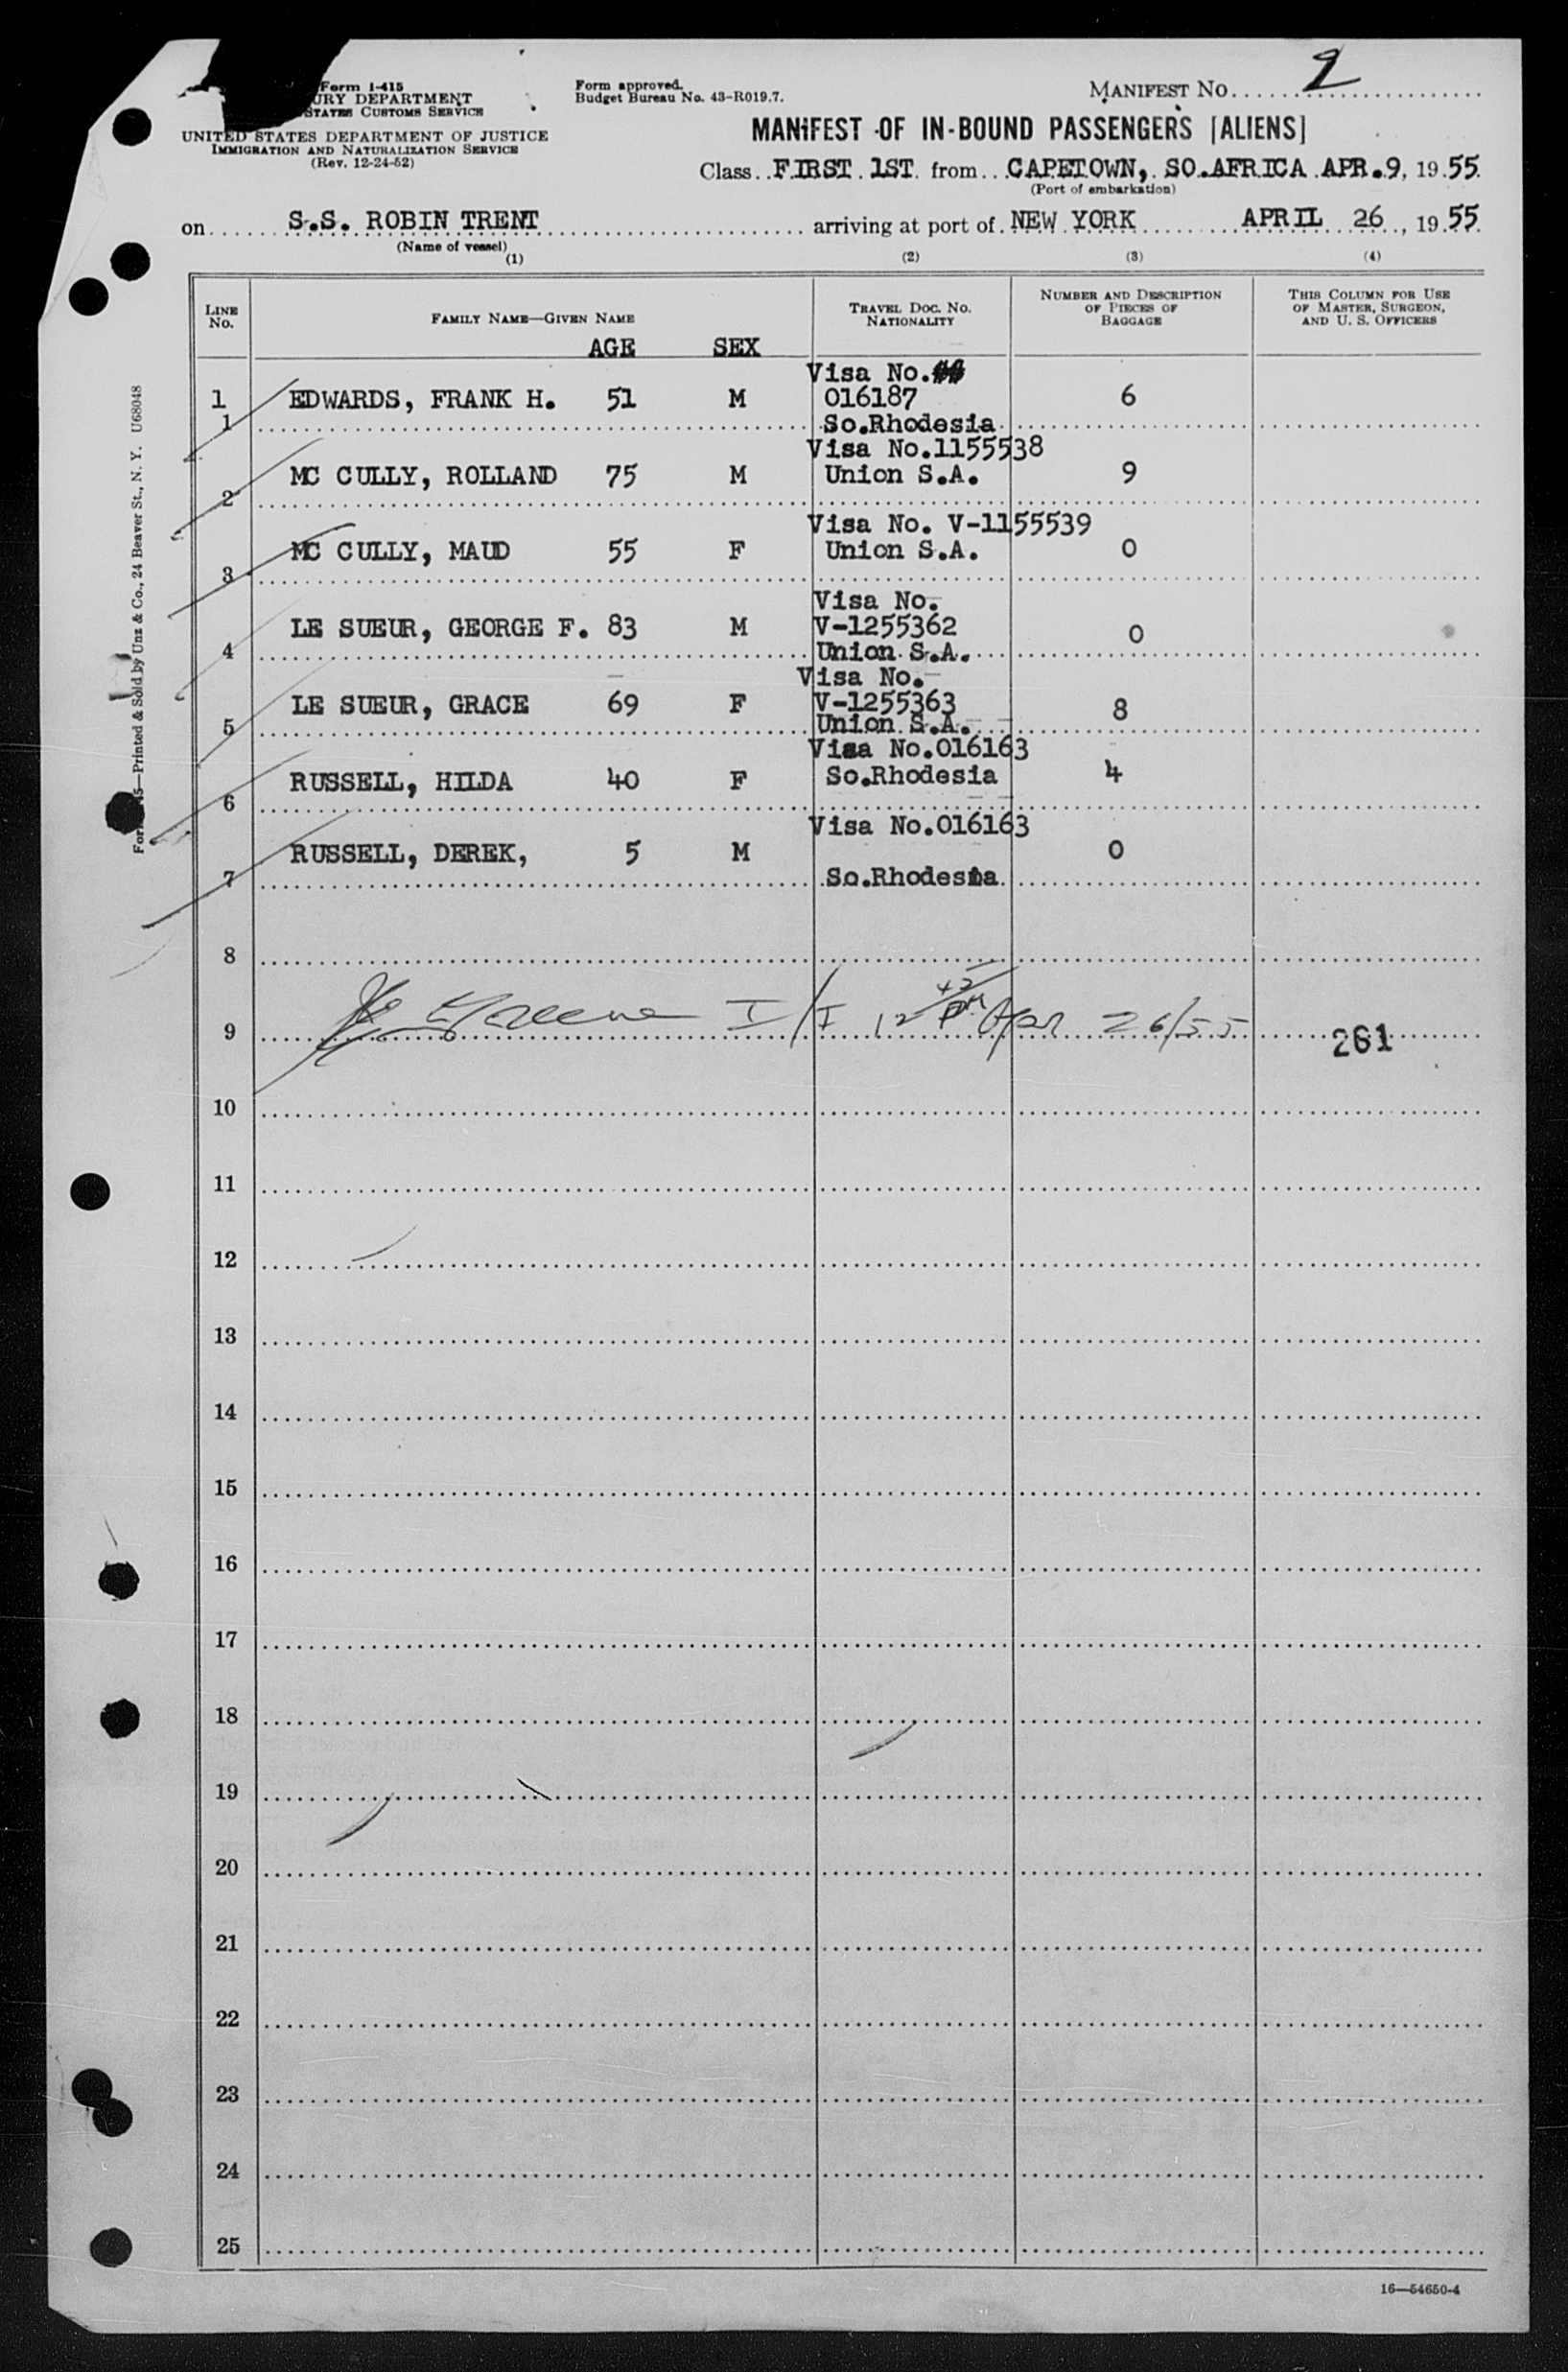 Form I-415
URY DEPARTMENT
STATES CUSTOMS SERVICE
UNITED STATES DEPARTMENT OF JUSTICE
IMMIGRATION AND NATURALIZATION SERVICE
(Rev. 12-24-52)
Form approved.
Budget Bureau No. 43-R019.7.
MANIFEST No. 2
MANIFEST OF IN-BOUND PASSENGERS [ALIENS]
Class FIRST 1ST from CAPETOWN, SO.AFRICA APR.9, 1955
(Port of embarkation)
on S.S. ROBIN TRENT arriving at port of NEW YORK APRIL 26, 1955
(Name of vessel)
(1) (2) (3) (4)
LINE No. FAMILY NAME—GIVEN NAME AGE SEX TRAVEL DOC. NO. NATIONALITY NUMBER AND DESCRIPTION OF PIECES OF BAGGAGE THIS COLUMN FOR USE OF MASTER, SURGEON, AND U. S. OFFICERS
Visa No.
1 EDWARDS, FRANK H. 51 M 016187 6
1 So.Rhodesia
Visa No.1155538
MC CULLY, ROLLAND 75 M Union S.A. 9
2
Visa No. V-1155539
MC CULLY, MAUD 55 F Union S.A. 0
3
Visa No.
LE SUEUR, GEORGE F. 83 M V-1255362 0
4 Union S.A.
Visa No.
LE SUEUR, GRACE 69 F V-1255363 8
5 Union S.A.
Visa No.016163
RUSSELL, HILDA 40 F So.Rhodesia 4
6
Visa No.016163
RUSSELL, DEREK, 5 M 0
7 So.Rhodesia
8
9 I/I 12 42 PM Apr 26/55 261
10
11
12
13
14
15
16
17
18
19
20
21
22
23
24
25
16—54650-4
45—Printed & Sold by Unz & Co., 24 Beaver St., N. Y. U68048